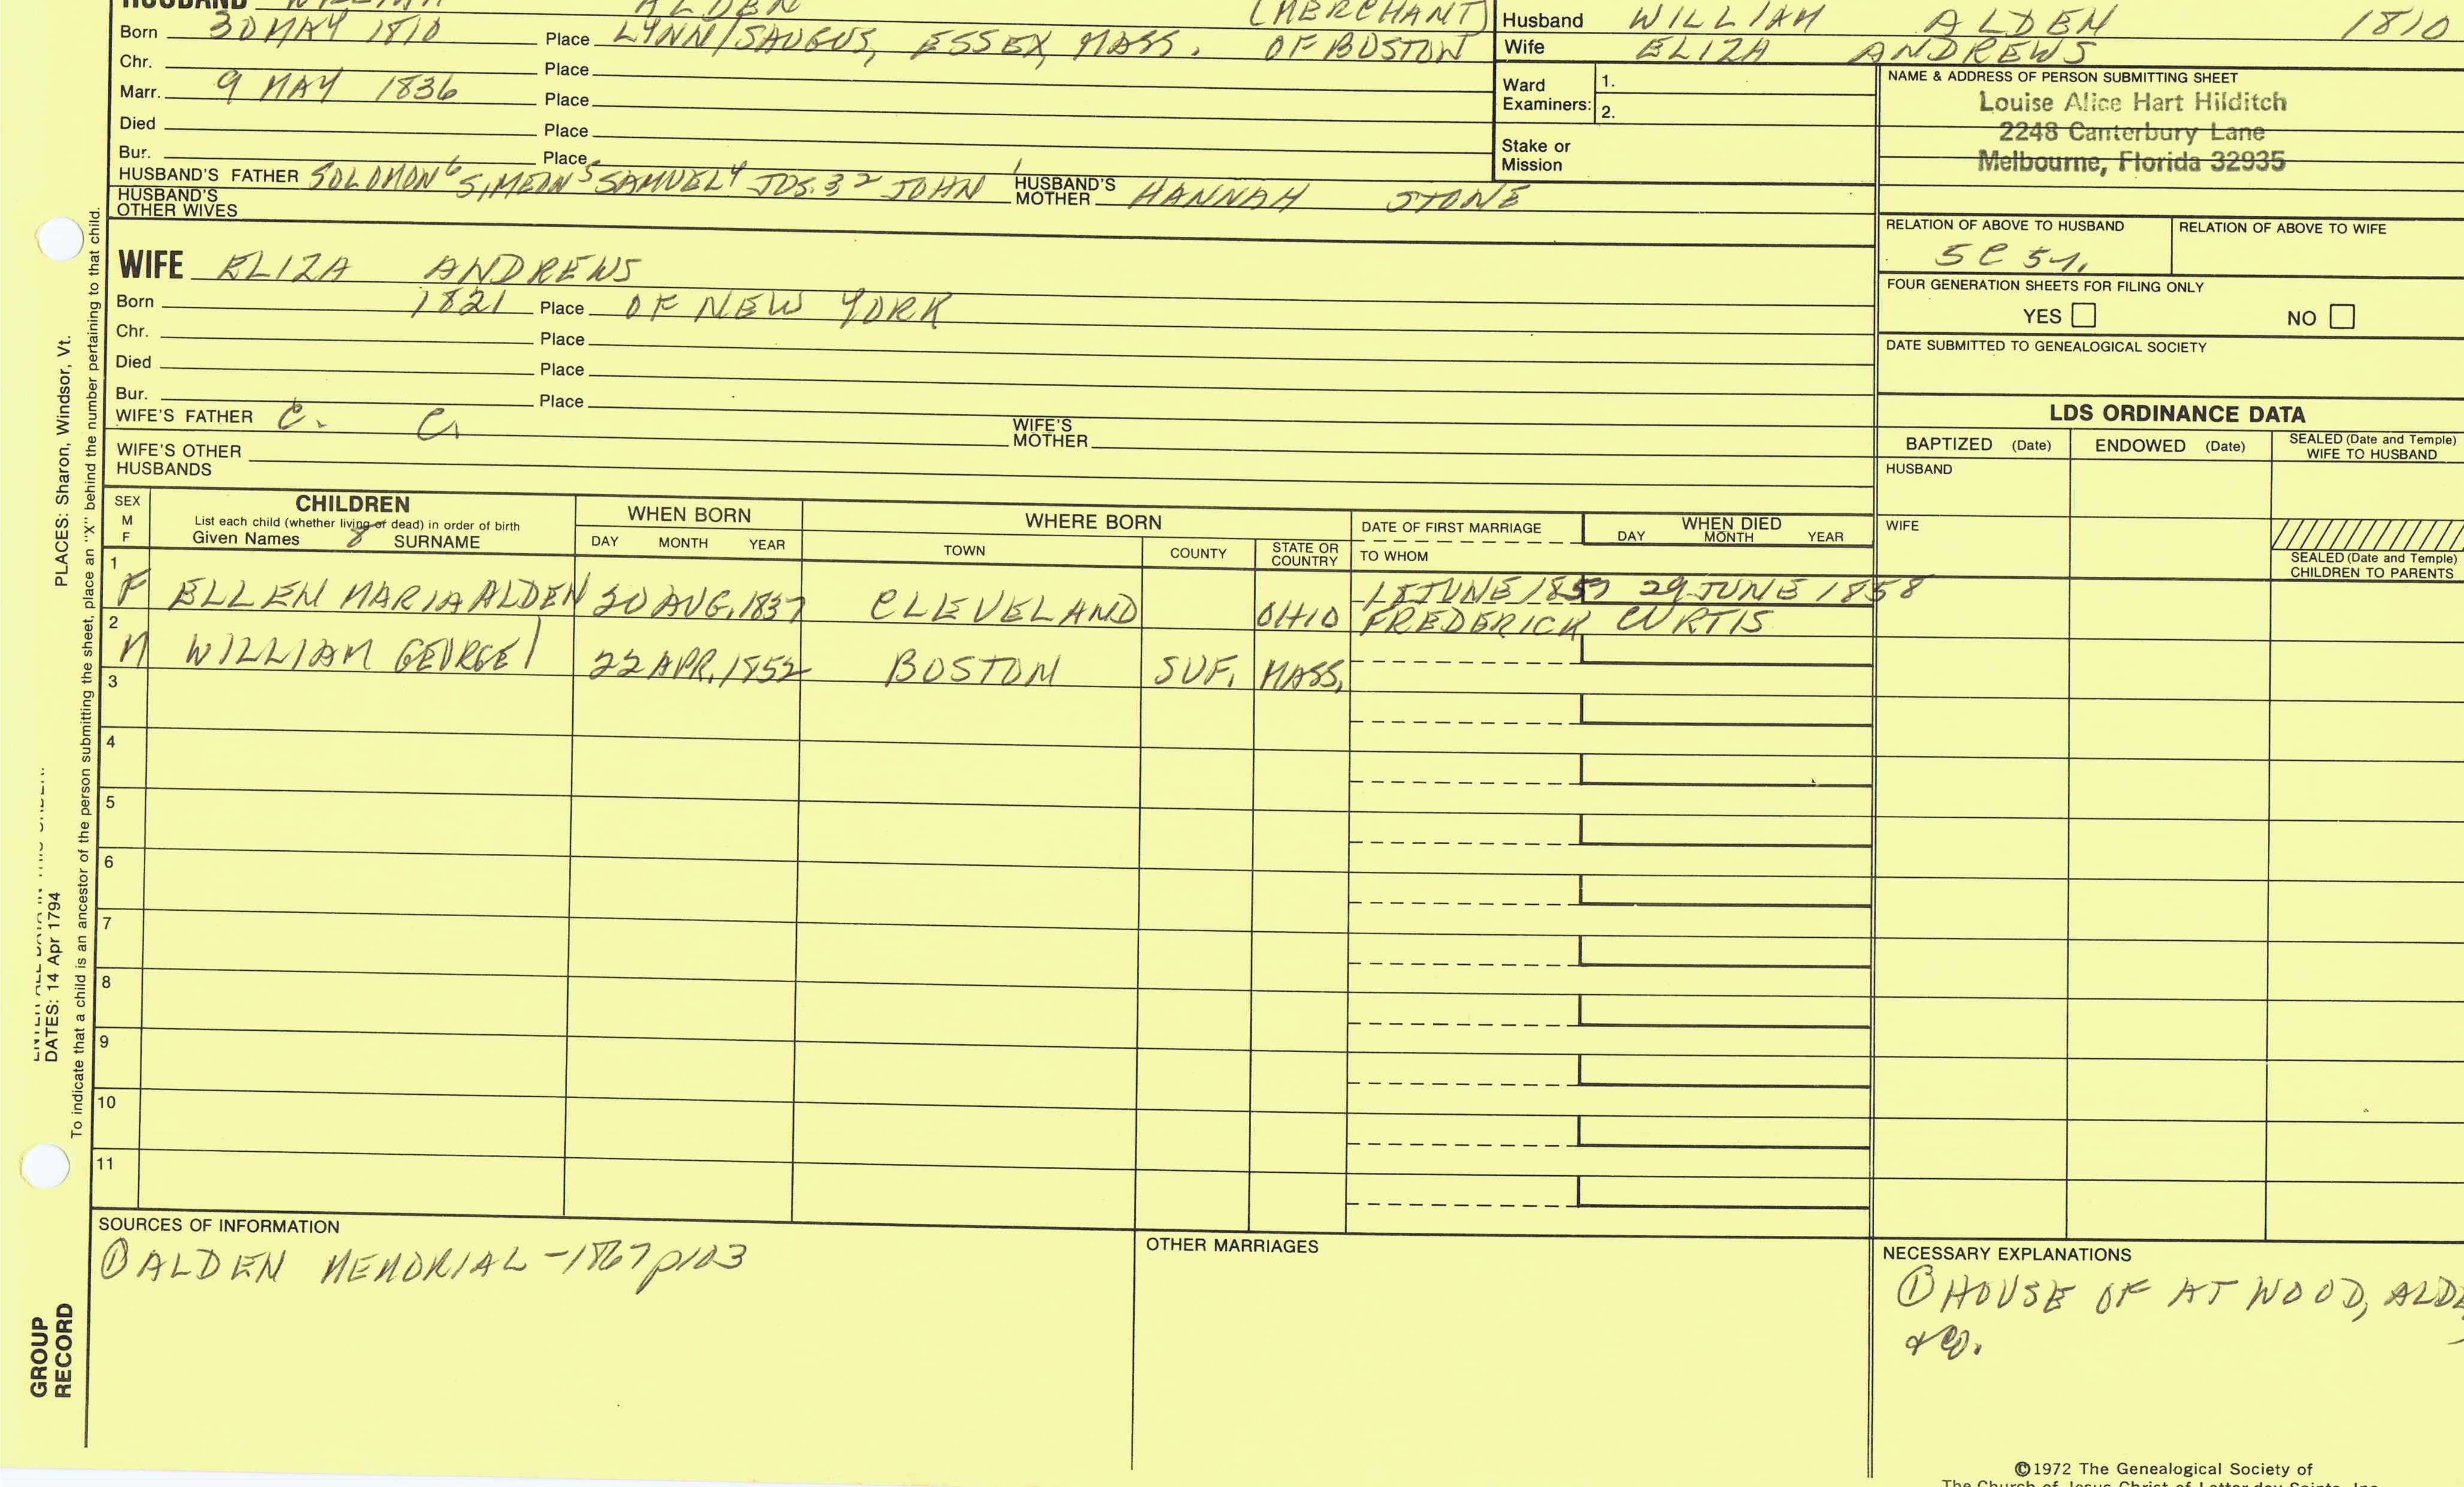 HUSBAND WILLIAM ALDEN (MERCHANT)
Born 30 MAY 1810 Place LYNN/SAUGUS, ESSEX, MASS. OF BOSTON
Chr. Place
Marr. 9 MAY 1836 Place
Died Place
Bur. Place
HUSBAND'S FATHER SOLOMON6 SIMEON5 SAMUEL4 JOS.3 2 JOHN 1 HUSBAND'S MOTHER HANNAH STONE
HUSBAND'S OTHER WIVES
Husband WILLIAM ALDEN 1810
Wife ELIZA ANDREWS
Ward Examiners: 1.
2.
Stake or Mission
NAME & ADDRESS OF PERSON SUBMITTING SHEET
Louise Alice Hart Hilditch
2248 Canterbury Lane
Melbourne, Florida 32935
RELATION OF ABOVE TO HUSBAND RELATION OF ABOVE TO WIFE
5 C 5
FOUR GENERATION SHEETS FOR FILING ONLY
YES NO
DATE SUBMITTED TO GENEALOGICAL SOCIETY
WIFE ELIZA ANDREWS
Born 1821 Place OF NEW YORK
Chr. Place
Died Place
Bur. Place
WIFE'S FATHER C. C. WIFE'S MOTHER
WIFE'S OTHER HUSBANDS
LDS ORDINANCE DATA
BAPTIZED (Date) ENDOWED (Date) SEALED (Date and Temple) WIFE TO HUSBAND
HUSBAND
WIFE
SEALED (Date and Temple) CHILDREN TO PARENTS
SEX M F
CHILDREN
List each child (whether living or dead) in order of birth
Given Names 8 SURNAME
WHEN BORN
DAY MONTH YEAR
WHERE BORN
TOWN COUNTY STATE OR COUNTRY
DATE OF FIRST MARRIAGE
TO WHOM
WHEN DIED
DAY MONTH YEAR
1 F ELLEN MARIA ALDEN 30 AUG, 1837 CLEVELAND OHIO 18 JUNE 1857 29 JUNE 1858
FREDERICK CURTIS
2 M WILLIAM GEORGE 22 APR, 1852 BOSTON SUF, MASS,
3
4
5
6
7
8
9
10
11
SOURCES OF INFORMATION
① ALDEN MEMORIAL - 1867 p103
OTHER MARRIAGES
NECESSARY EXPLANATIONS
① HOUSE OF ATWOOD, ALDE
& CO.
©1972 The Genealogical Society of
The Church of Jesus Christ of Latter-day Saints, Inc.
DATES: 14 Apr 1794 PLACES: Sharon, Windsor, Vt.
To indicate that a child is an ancestor of the person submitting the sheet, place an "X" behind the number pertaining to that child.
GROUP
RECORD